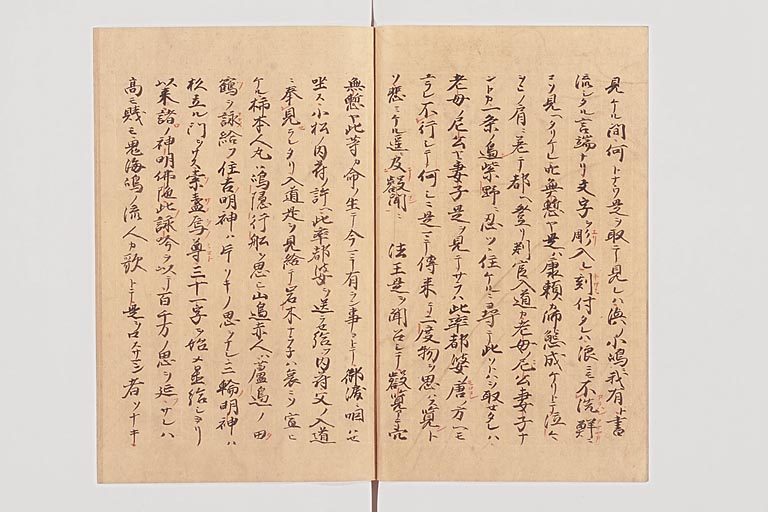 見ケル間何トナウ是ヲ取テ見レハ奥ノ小嶋我有ト書
流シタル言端ナリ文字ヲ彫入レ刻付タレハ浪ニモ不洗鮮ニ
コソ見ヘタリケレ此無慙ヤ是ハ康頼カ仕態成ケリトテ泣々
肩ニ差テ都ヘ登リ判官入道カ老母ノ尼公妻子ナ
ントカ一条ノ烏紫野ニ忍ツヽ住ケルニ尋テ此トハヲ取セタレハ
老母ノ尼公ヤ妻子是ヲ見テサラハ此率都婆ノ唐ノ方ヘモ
ユラレ不行シテ何シニ是マテ傳来テ二度物ヲ思ハス覧ト
ソ悲ミケル遥及叡聞ニ 法王是ヲ聞召シテ叡覧有
無慙ヤ此等カ命ノ生テ今マテ有ラン事ヨトテ御涙ニ咽ハせ
坐ス小松ノ内府ノ許ヘ此率都婆ヲ送ラせ給フ内府父ノ入道
ニ奉見セラレタリ入道是ヲ見給テ岩木ナラネハ哀ニソ宣ヒ
ケル柿本人丸ハ嶋隠行舩ヲ思ヒ山邊赤人ハ蘆邊ノ田
鶴ヲ詠給フ住吉明神ハ片ソキノ思ヲナシ三輪明神ハ
杉立ル門ヲサス素盞烏尊三十一字ヲ始メ置給シヨリ
以来諸ノ神明佛陀此詠吟ヲ以テ百千万ノ思ヲ延ヘサレハ
高モ賤モ鬼海嶋ノ流人カ歌トテ是ヲ口スサマヌ者ソナキ